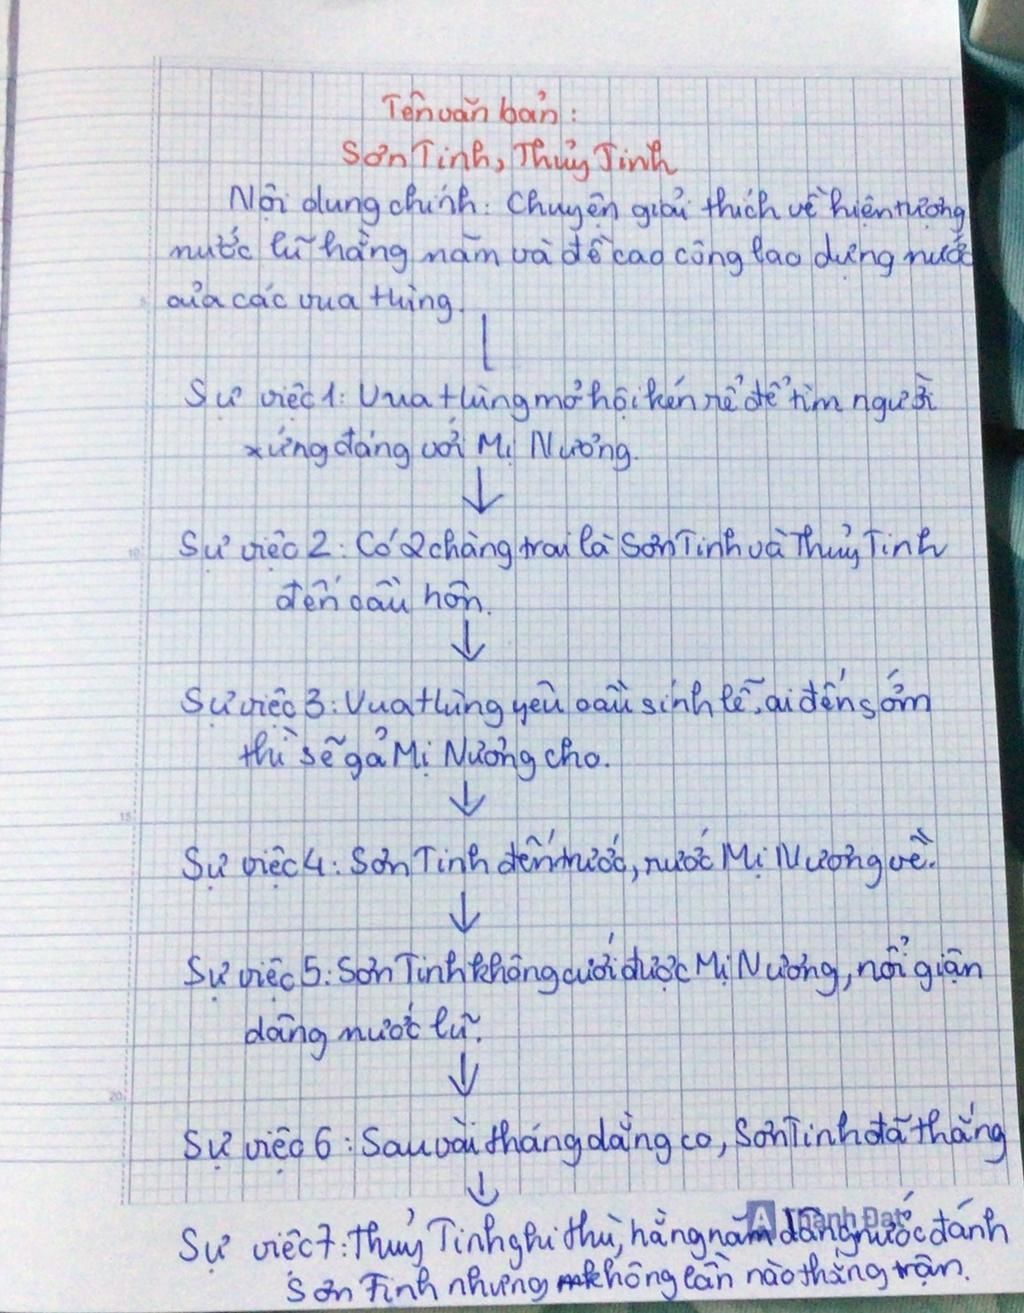 Tên văn bản:
Sơn Tinh, Thủy Tinh
Nội dung chính: Chuyện giải thích về hiện tượng
nước lũ hằng năm và đề cao công lao dựng nước
của các vua Hùng.
Sự việc 1: Vua Hùng mở hội kén rể để tìm người
xứng đáng với Mị Nương.
Sự việc 2: Có 2 chàng trai là Sơn Tinh và Thuỷ Tinh
đến cầu hôn.
Sự việc 3: Vua Hùng yêu cầu sính lễ, ai đến sớm
thì sẽ gả Mị Nương cho.
Sự việc 4: Sơn Tinh đến trước, rước Mị Nương về.
Sự việc 5: Sơn Tinh không cưới được Mị Nương, nổi giận
dâng nước lũ.
Sự việc 6: Sau vài tháng dằng co, Sơn Tinh đã thắng
Sự việc 7: Thuỷ Tinh ghi thù, hằng năm dâng nước đánh
Sơn Tinh nhưng không lần nào thắng trận.
A Thành Đạt
10
15
20